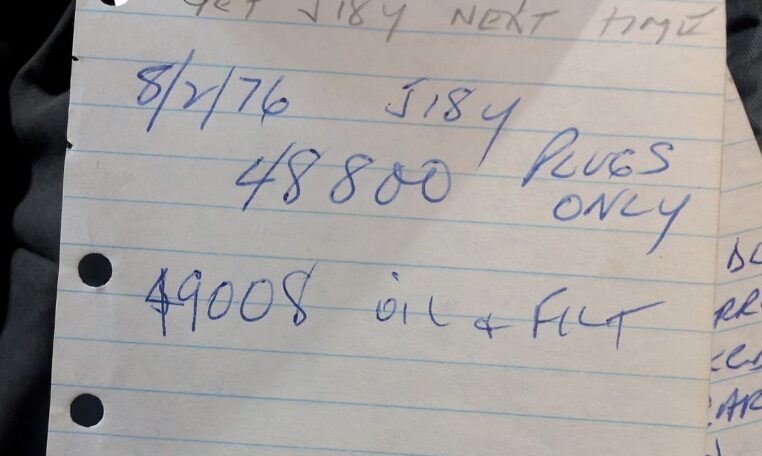 GET J18Y NEXT TIME
8/2/76 J18Y
48800 PLUGS
ONLY
49008 OIL + FILT